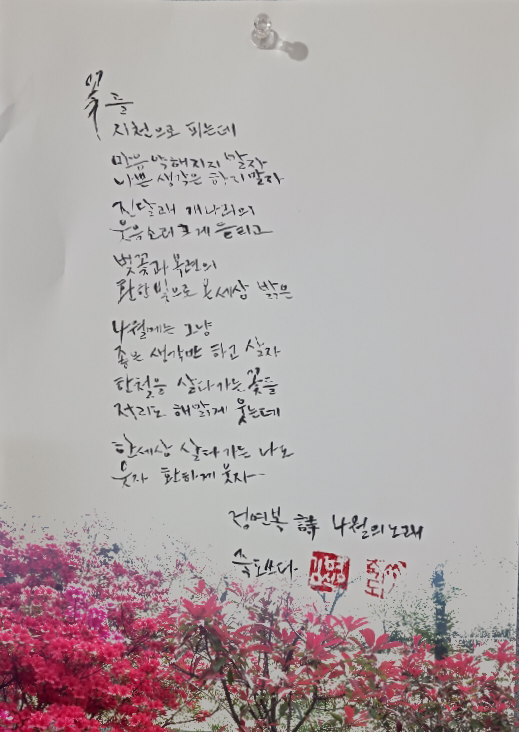 꽃들
지천으로 피는데
마음 약해지지 말자
나쁜 생각은 하지 말자
진달래 개나리의
웃음소리 크게 들리고
벚꽃과 목련의
환한 빛으로 온 세상 밝은
4월에는 그냥
좋은 생각만 하고 살자
한철을 살다가는 꽃들
저리도 해맑게 웃는데
한세상 살다가는 나도
웃자 환하게 웃자
정연복 詩 4월의 노래
쓰다